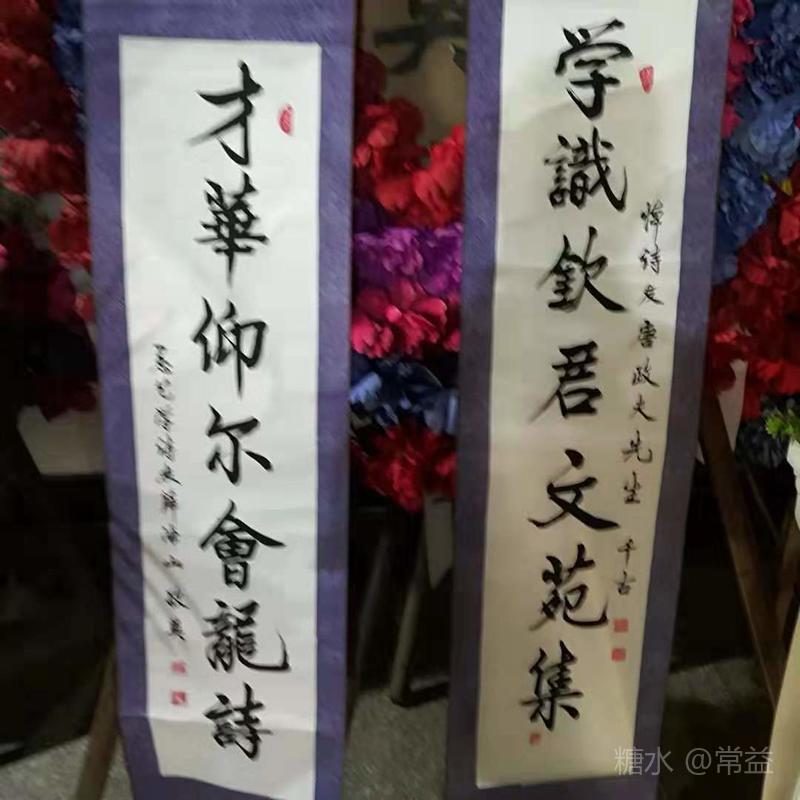 学識欽君文苑集
悼诗友唐政夫先生千古
才華仰尔會龍詩
敬輓
糖水 @常益